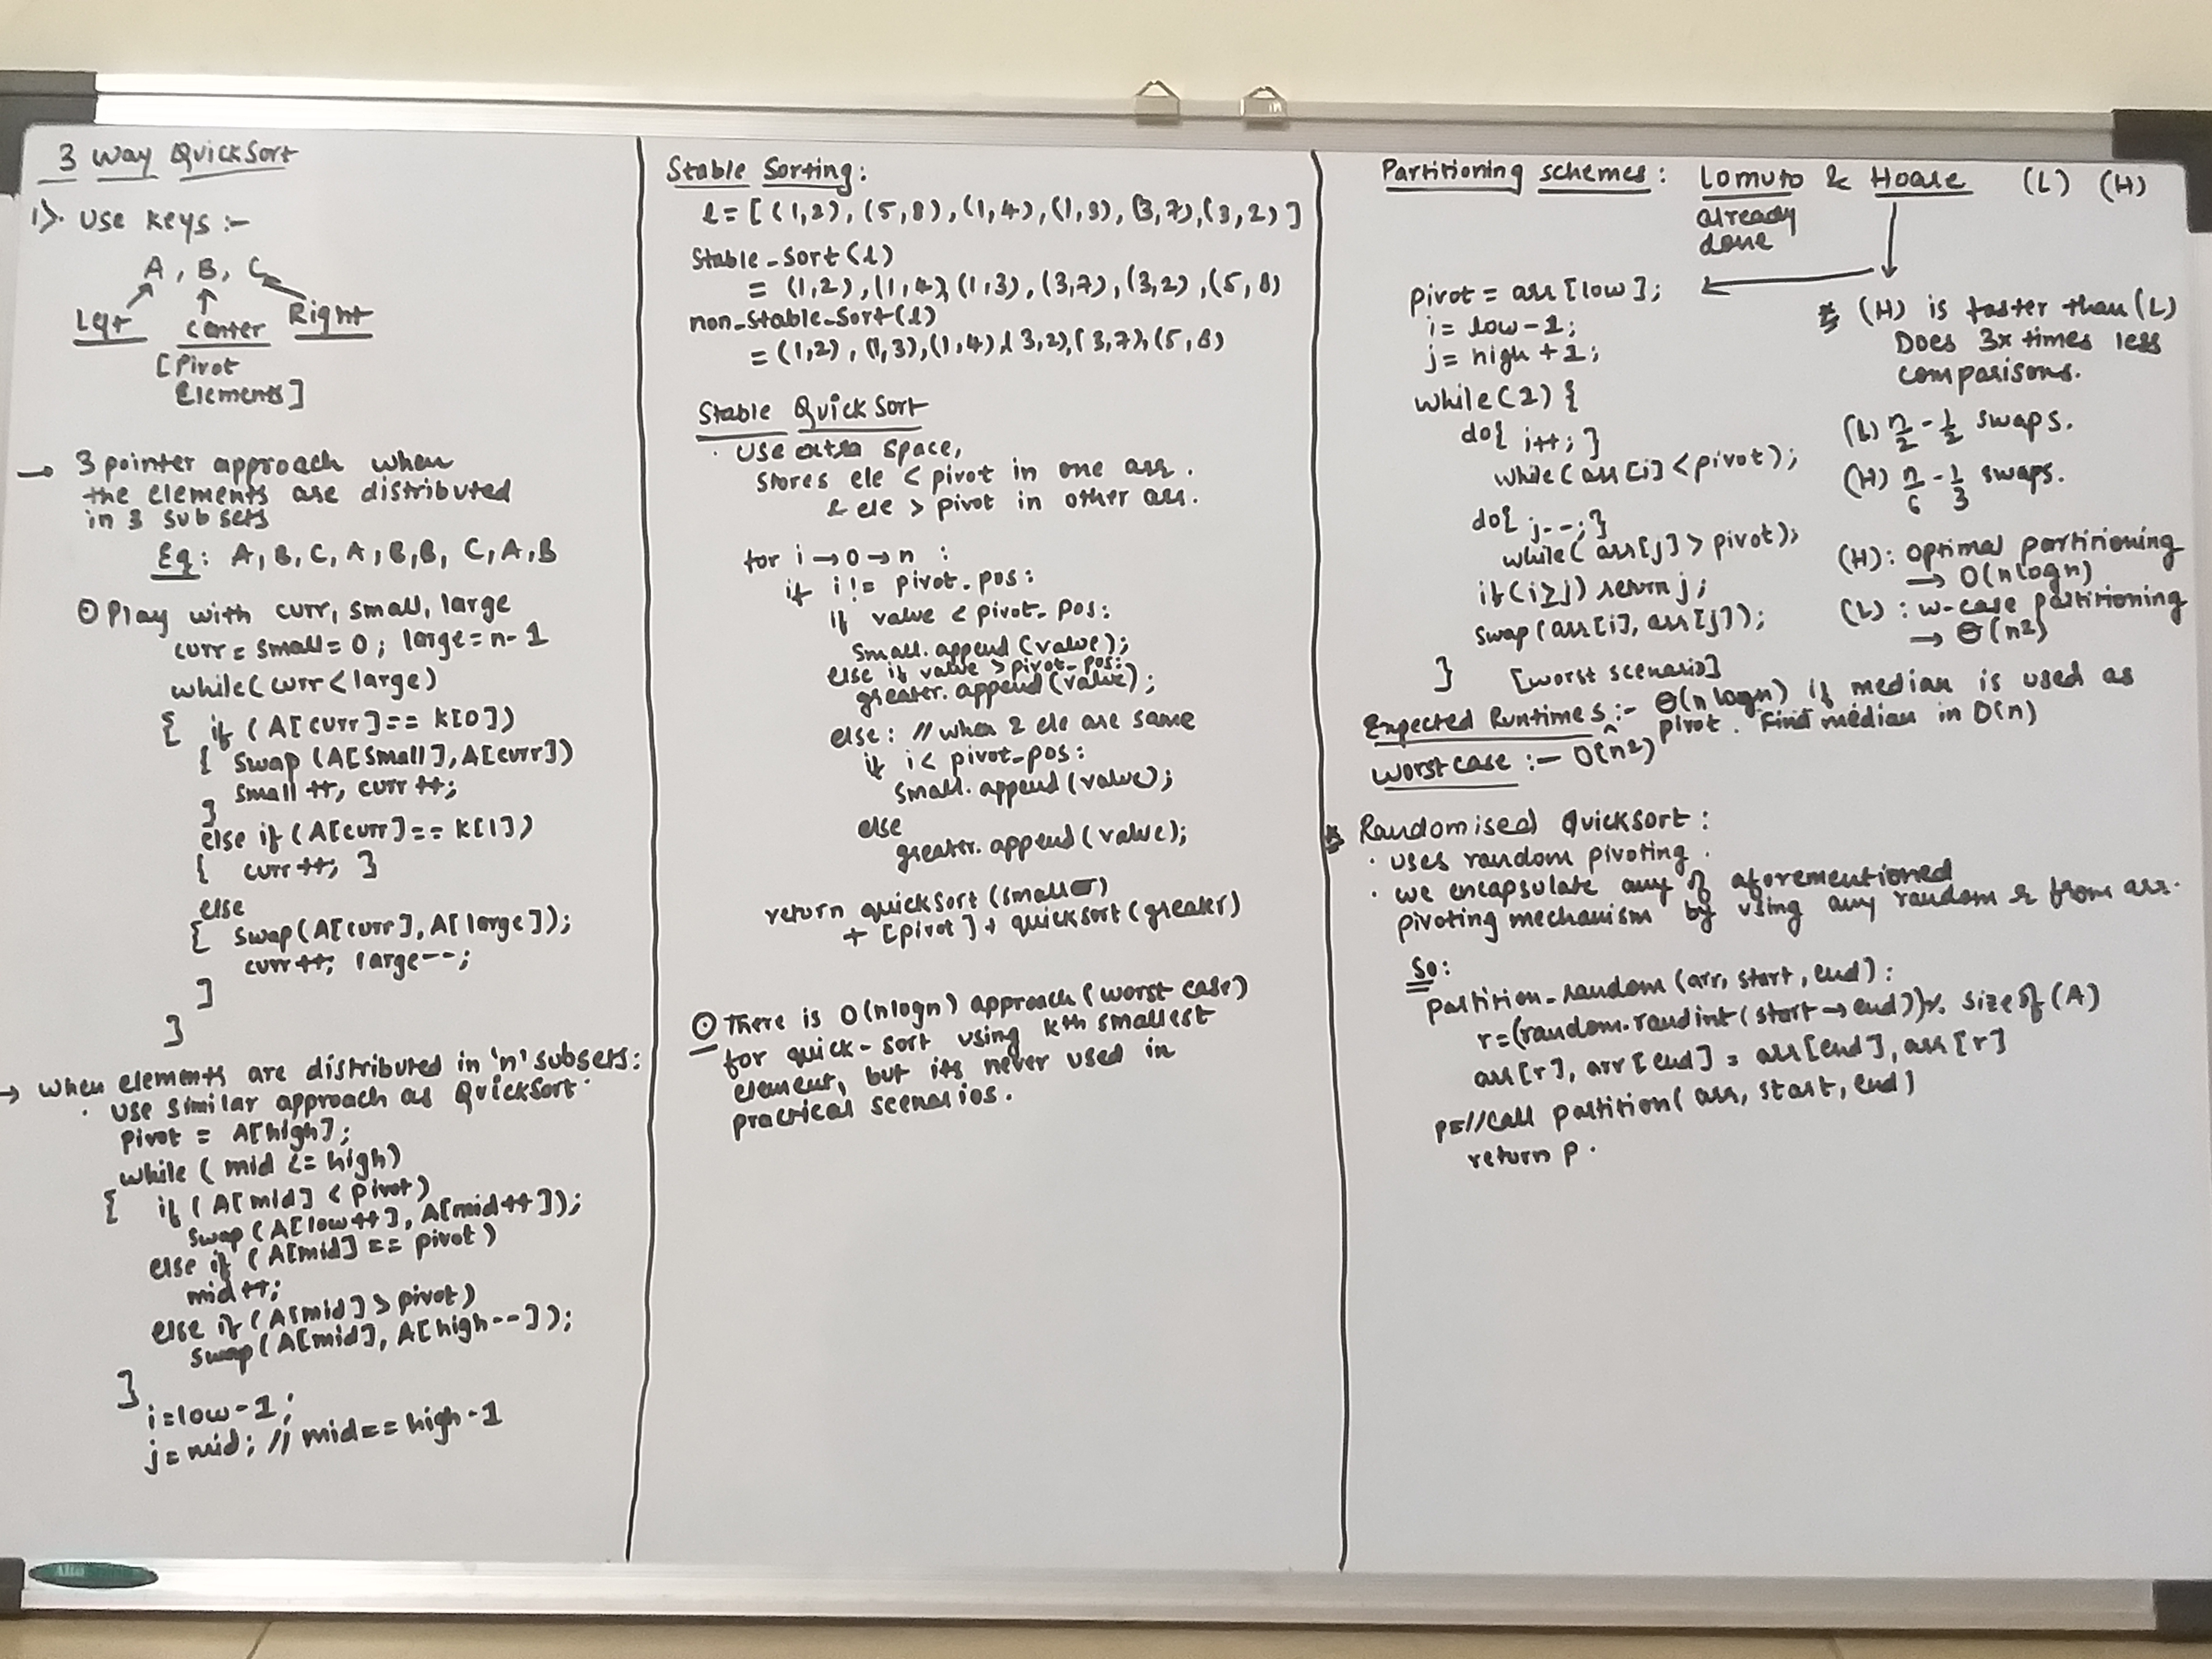 3 Way QuickSort
1). Use Keys :-
A, B, C
Left Center Right
[Pivot
Elements]
→ 3 pointer approach when
the elements are distributed
in 3 subsets
Eg: A, B, C, A, B, B, C, A, B
⊙ Play with curr, small, large
curr = small = 0; large = n-1
while(curr < large)
{ if (A[curr] == K[0])
{ swap (A[small], A[curr])
small ++, curr ++;
}
else if (A[curr] == K[1])
{ curr ++; }
else
{ swap(A[curr], A[large]);
curr++; large--;
}
}
→ when elements are distributed in 'n' subsets:
· use similar approach as QuickSort
pivot = A[high];
while ( mid <= high)
{ if ( A[mid] < pivot)
swap (A[low++], A[mid++]);
else if (A[mid] == pivot)
mid ++;
else if (A[mid] > pivot)
swap (A[mid], A[high--]);
}
i = low-1;
j = mid; // mid == high-1
Stable Sorting:
l = [(1,2), (5,8), (1,4), (1,3), (3,7), (3,2)]
Stable_Sort(l)
= (1,2), (1,4), (1,3), (3,7), (3,2), (5,8)
non_stable_Sort(l)
= (1,2), (1,3), (1,4), (3,2), (3,7), (5,8)
Stable QuickSort
· Use extra space,
Stores ele < pivot in one arr.
& ele > pivot in other arr.
for i → 0 → n :
if i != pivot. pos:
if value < pivot_ pos:
small. append (value);
else if value > pivot_pos:
greater. append (value);
else: // when 2 ele are same
if i < pivot_pos:
small. append (value);
else
greater. append (value);
return quickSort (small)
+ [pivot] + quicksort (greater)
⊙ There is O(nlogn) approach (worst case)
for quick-sort using Kth smallest
element, but its never used in
practical scenarios.
Partitioning schemes: Lomuto & Hoare (L) (H)
already
done
pivot = arr [low];
i = low-1;
j = high +1;
while(1) {
do{ i++; }
while( arr [i] < pivot);
do{ j--; }
while( arr[j] > pivot);
if( i ≥ j) return j;
swap (arr[i], arr[j]);
}
(H) is faster than (L)
Does 3x times less
comparisons.
(L) n/2 - 1/2 swaps.
(H) n/6 - 1/3 swaps.
(H): optimal partitioning
→ O(nlogn)
(L) : w-case partitioning
→ Θ(n2)
[worst scenario]
Expected Runtimes :- Θ(n logn) if median is used as
pivot. Find median in O(n)
worst case :- O(n^2)
Randomised Quicksort :
· uses random pivoting.
· we encapsulate any of aforementioned
pivoting mechanism by using any random r from arr.
So:
Partition_random (arr, start, end) :
r=(random.randint(start → end))% size of (A)
arr[r], arr [end] = arr[end], arr [r]
p=//call partition( arr, start, end)
return p.